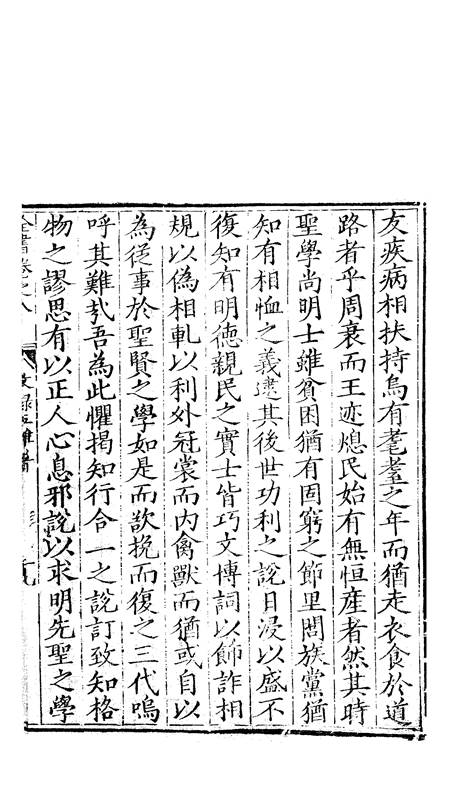 友疾病相扶持烏有耄耋之年而猶走衣食於道
路者乎周衰而王迹熄民始有無恒産者然其時
聖學尚明士雖貧困猶有固窮之節里閭族黨猶
知有相恤之義逮其後世功利之說日浸以盛不
復知有明德親民之實士皆巧文博詞以飾詐相
規以偽相軋以利外冠裳而內禽獸而猶或自以
為從事於聖賢之學如是而欲挽而復之三代嗚
呼其難㢤吾為此懼揭知行合一之說訂致知格
物之謬思有以正人心息邪說以求明先聖之學
全書卷之八 文録五雜著